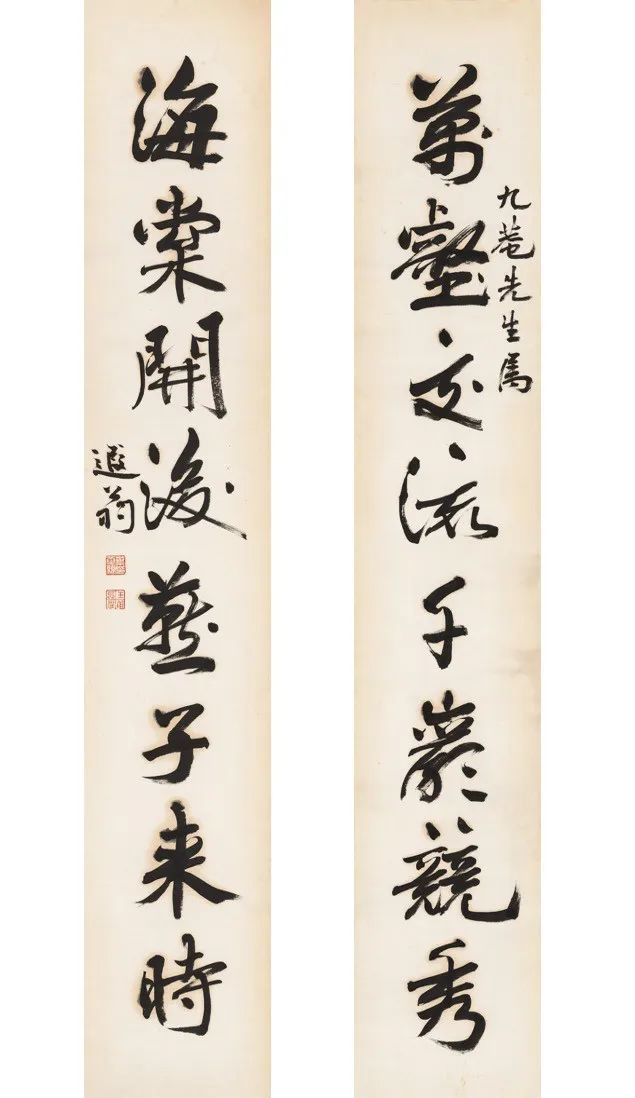 萬壑交流千巖競秀
九菴先生屬
海棠開後燕子来時
遐翁